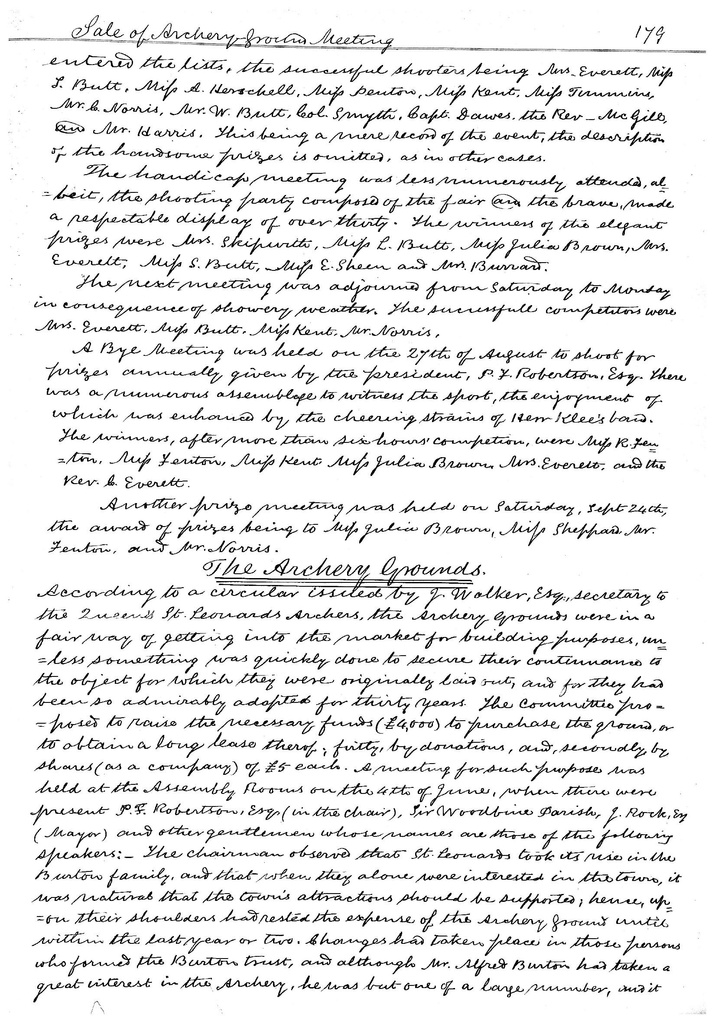 Sale of Archery-Ground Meeting 179
entered the lists, the successful shooters being Mrs. Everett, Miss
S. Butt, Miss A. Herschell, Miss Fenton, Miss Kent, Miss Timmins,
Mr. C. Norris, Mr. W. Butt, Col. Smyth, Capt. Dawes, the Rev_ McGill,
and Mr. Harris. This being a mere record of the event, the description
of the handsome prizes is omitted, as in other cases.
The handicap meeting was less numerously attended, al=
=beit, the shooting party composed of the fair and the brave, made
a respectable display of over thirty. The winners of the elegant
prizes were Mrs. Skipwith, Miss L. Butt, Miss Julia Brown, Mrs.
Everett, Miss S. Butt, Miss E. Sheen and Mrs. Burrard.
The next meeting was adjourned from Saturday to Monday
in consequence of showery weather. The successfull competitors were
Mrs. Everett, Miss Butt, Miss Kent, Mr. Norris.
A Bye Meeting was held on the 27th of August to shoot for
prizes annually given by the president, P. F. Robertson, Esq. There
was a numerous assemblage to witness the sport, the enjoyment of
which was enhanced by the cheering strains of Herr Klee's band.
The winners, after more than six hours' competion, were Miss R. Fen=
=ton, Miss Fenton, Miss Kent Miss Julia Brown, Mrs. Everett, and the
Rev. C. Everett.
Another prize meeting was held on Saturday, Sept 24th,
the award of prizes being to Miss Julia Brown, Miss Sheppard, Mr.
Fenton, and Mr. Norris.
The Archery Grounds.
According to a circular issued by J. Walker, Esq., secretary to
the Queen's St. Leonards Archers, the Archery Grounds were in a
fair way of getting into the market for building purposes, un=
=less something was quickly done to secure their contenuance to
the object for which they were originally laid out, and for they had
been so admirably adapted for thirty years. The Committee pro=
=posed to raise the necessary funds (£4,000) to purchase the ground, or
to obtain a long lease therof; firstly, by donations, and, secondly by
shares (as a company) of £5 each. A meeting for such purpose was
held at the Assembly Rooms on the 4th of June, when there were
present P. F. Robertson, Esq. (in the chair), Sir Woodbine Parish, J. Rock, Esq
(Mayor) and other gentlemen whose names are those of the following
speakers:_ The chairman observed that St. Leonards took its rise in the
Burton family, and that when they alone were interested in the town, it
was natural that the town's attractions should be supported; hence, up=
=on their shoulders had rested the expense of the Archery Ground until
within the last year or two. Changes had taken place in those persons
who formed the Burton trust, and although Mr. Alfred Burton had taken a
great interest in the Archery, he was but one of a large number, and it